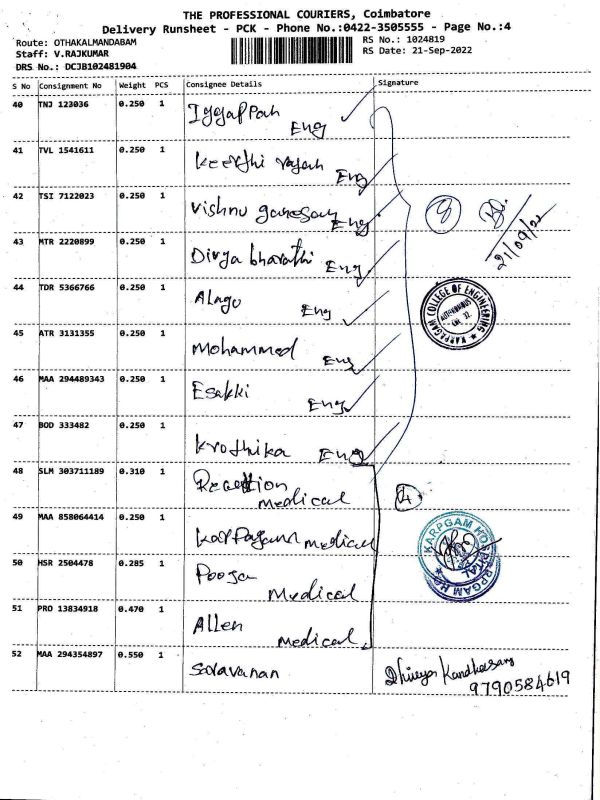 THE PROFESSIONAL COURIERS, Coimbatore
Delivery Runsheet - PCK - Phone No.:0422-3505555 - Page No.:4
Route: OTHAKALMANDABAM
RS No.: 1024819
Staff: V.RAJKUMAR
RS Date: 21-Sep-2022
DRS No.: DCJB102481904
S No Consignment No Weight PCS Consignee Details Signature
40 TNJ 123036 0.250 1 Iyyappan
Eng
41 TVL 1541611 0.250 1 Keerthi rajan
Eng
42 TSI 7122023 0.250 1 Vishnu ganesan
Eng
8
21/09/22
43 MTR 2220899 0.250 1 Divya bharathi Eng
44 TDR 5366766 0.250 1 Alagu
Eng
KARPAGAM COLLEGE OF ENGINEERING
AUTONOMOUS
CBE 32
45 ATR 3131355 0.250 1 Mohammed
Eng
46 MAA 294489343 0.250 1 Esakki
Eng
47 BOD 333482 0.250 1 Krothika Eng
48 SLM 303711189 0.310 1 Reception
medical
4
49 MAA 858064414 0.250 1 Karpagam medical
KARPGAM HOSPITAL
50 HSR 2504478 0.285 1 Pooja
Medical
51 PRO 13834918 0.470 1 Allen
medical
52 MAA 294354897 0.550 1 Saravanan
9790584619